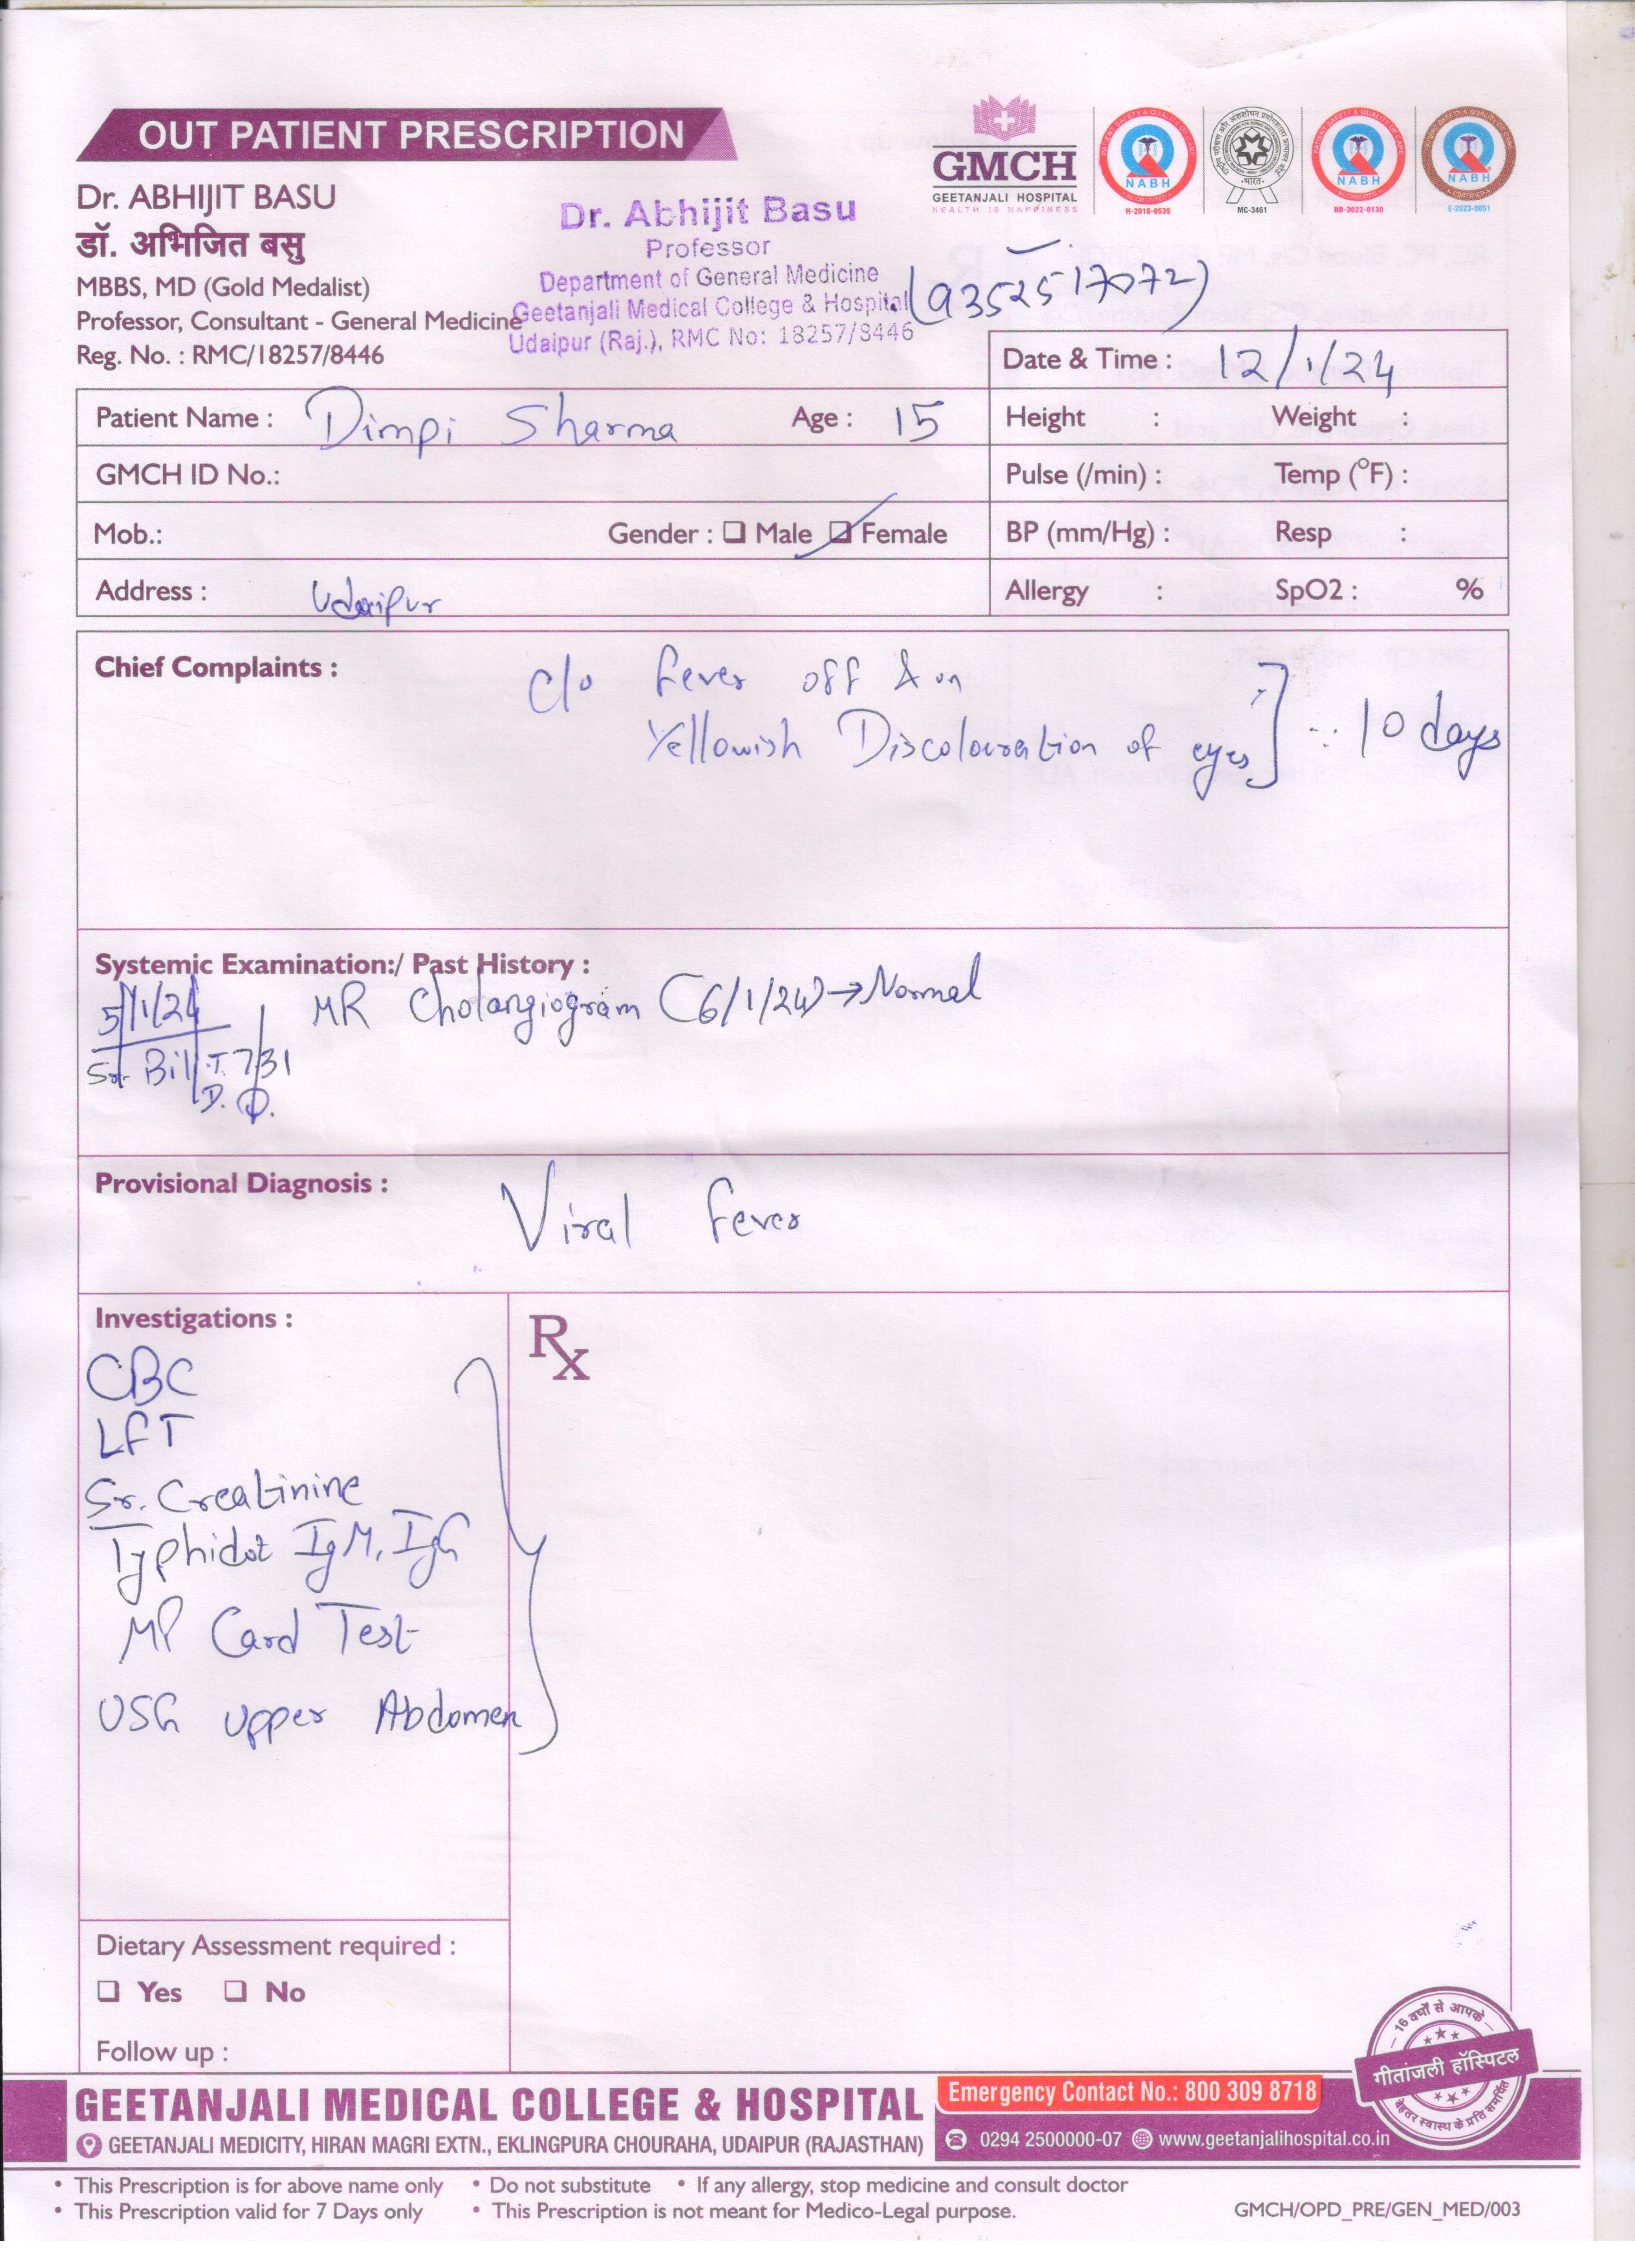 OUT PATIENT PRESCRIPTION
GMCH
GEETANJALI HOSPITAL
HEALTH IS HAPPINESS
NABH
H-2018-0535
MC-3461
NABH
BB-2022-0130
NABH
E-2023-0051
Dr. ABHIJIT BASU
डॉ. अभिजित बसु
MBBS, MD (Gold Medalist)
Professor, Consultant - General Medicine
Reg. No. : RMC/18257/8446
Dr. Abhijit Basu
Professor
Department of General Medicine
Geetanjali Medical College & Hospital
Udaipur (Raj.), RMC No: 18257/8446
(9352517072)
Date & Time : 12/1/24
Patient Name : Dimpi Sharma Age : 15
Height : Weight :
GMCH ID No.:
Pulse (/min) : Temp (°F) :
Mob.: Gender : ❑ Male ❑ Female
BP (mm/Hg) : Resp :
Address : Udaipur
Allergy : SpO2 : %
Chief Complaints : c/o fever off & on
Yellowish Discolouration of eyes] 10 days
Systemic Examination:/ Past History :
5/1/24 MR Cholangiogram (6/1/24) → Normal
Sr. Bil T. 7.31
D.
Provisional Diagnosis : Viral fever
Investigations :
Rx
CBC
LFT
Sr. Creatinine
Typhidot IgM, IgG
MP Card Test
USG upper Abdomen
Dietary Assessment required :
❑ Yes ❑ No
Follow up :
16 वर्षों से आपके
गीतांजली हॉस्पिटल
बेहतर स्वास्थ के प्रति समर्पित
GEETANJALI MEDICAL COLLEGE & HOSPITAL
Emergency Contact No.: 800 309 8718
GEETANJALI MEDICITY, HIRAN MAGRI EXTN., EKLINGPURA CHOURAHA, UDAIPUR (RAJASTHAN)
0294 2500000-07 www.geetanjalihospital.co.in
• This Prescription is for above name only • Do not substitute • If any allergy, stop medicine and consult doctor
• This Prescription valid for 7 Days only • This Prescription is not meant for Medico-Legal purpose.
GMCH/OPD_PRE/GEN_MED/003